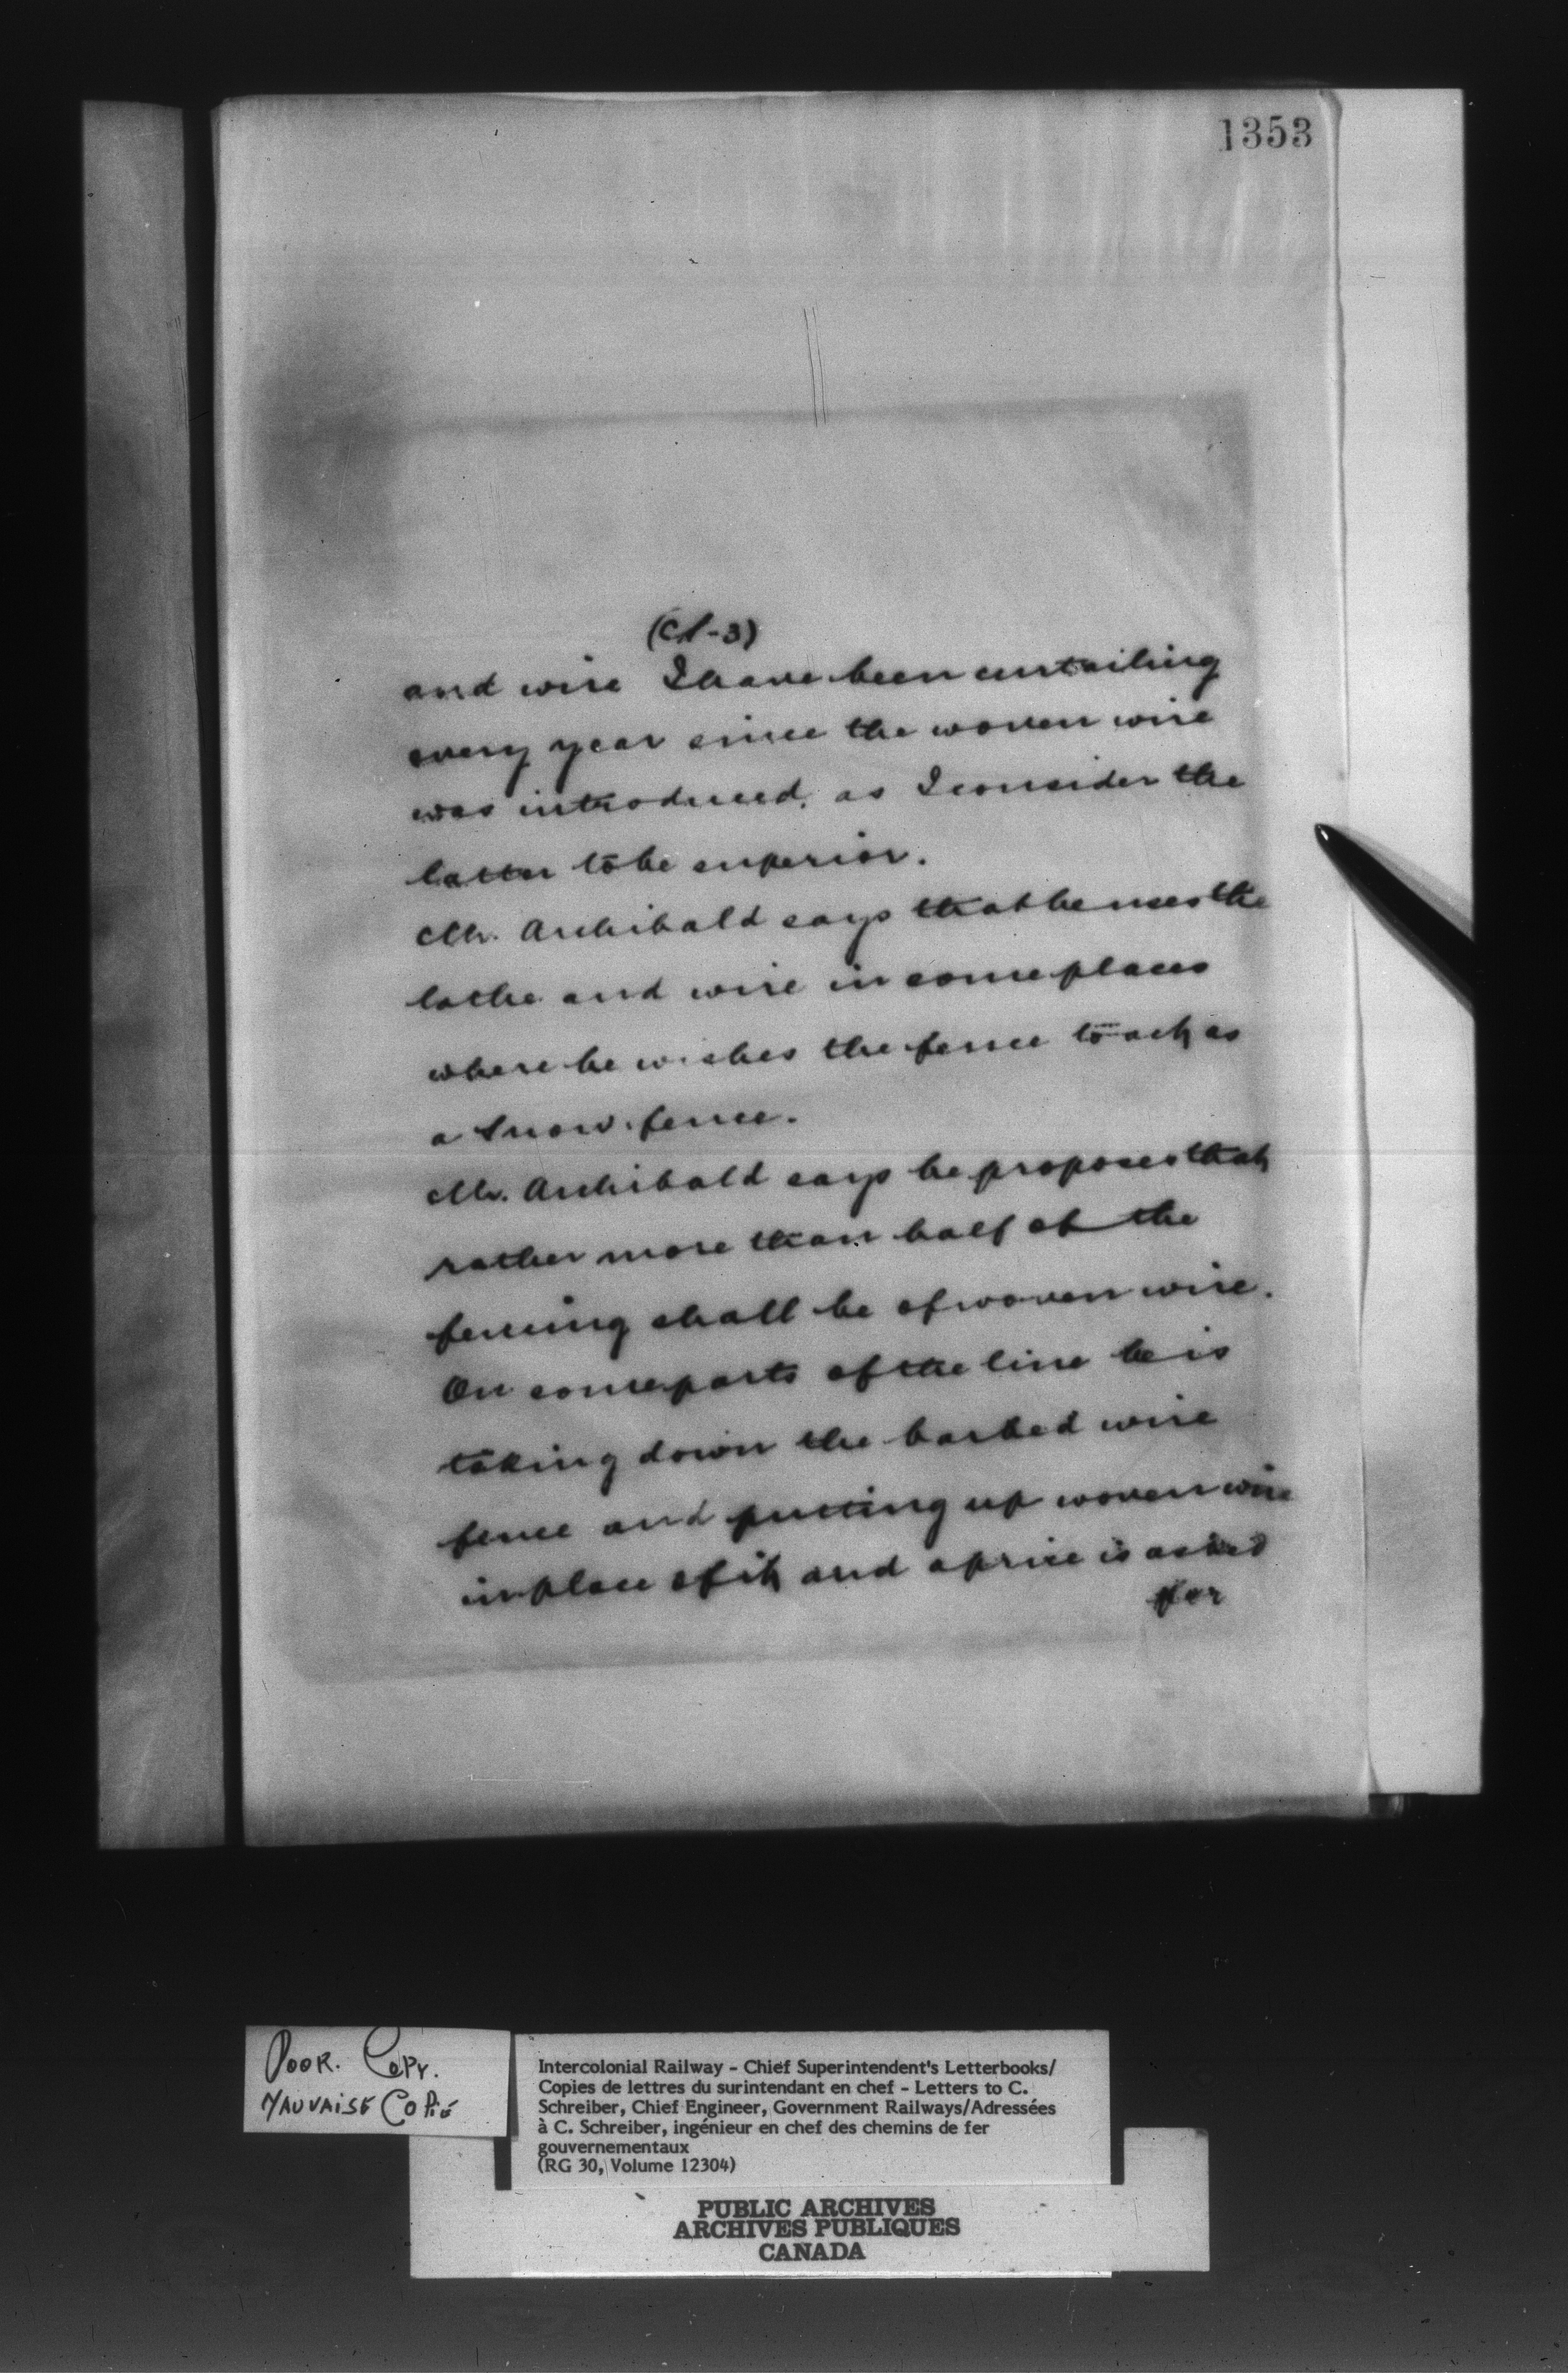 1353
and wire I have been curtailing
every year since the woven wire
was introduced, as I consider the
latter to be superior.
Mr. Archibald says that he uses the
lathe and wire in some places
where he wishes the fence to act as
a snow fence.
Mr. Archibald says he proposes that
rather more than half of the
fencing shall be of woven wire.
On some parts of the line he is
taking down the barbed wire
fence and putting up woven wire
in place of it and a price is asked
for
POOR. COPY.
MAUVAISE COPIE
Intercolonial Railway - Chief Superintendent's Letterbooks/
Copies de lettres du surintendant en chef - Letters to C.
Schreiber, Chief Engineer, Government Railways/Adressées
à C. Schreiber, ingénieur en chef des chemins de fer
gouvernementaux
(RG 30, Volume 12304)
PUBLIC ARCHIVES
ARCHIVES PUBLIQUES
CANADA